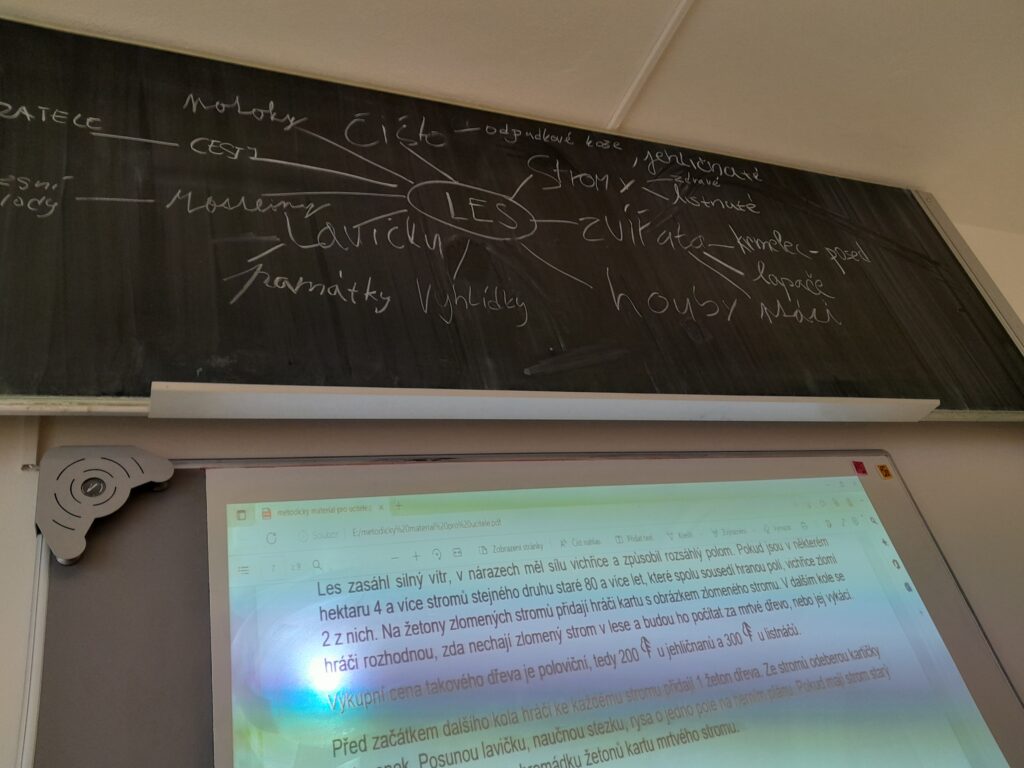 potoky
Čisto - odpadkové koše
ZATELÉ
CESTY
Stromy
, jehličnaté
zdravé
listnaté
LES
Mostemy
Lavičky
zvířata - krmelec - posed
lapače
památky
Vyhlídky
houby
metodicky material pro ucitele.p
Soubor
E:/metodicky%20material%20pro%20ucitele.pdf
Zobrazení stránky
Číst nahlas
Přidat text
Kreslit
Zvýraznění
Les zasáhl silný vítr, v nárazech měl sílu vichřice a způsobil rozsáhlý polom. Pokud jsou v některém
hektaru 4 a více stromů stejného druhu staré 80 a více let, které spolu sousedí hranou polí, vichřice zlomí
2 z nich. Na žetony zlomených stromů přidají hráči kartu s obrázkem zlomeného stromu. V dalším kole se
hráči rozhodnou, zda nechají zlomený strom v lese a budou ho počítat za mrtvé dřevo, nebo jej vykácí.
Výkupní cena takového dřeva je poloviční, tedy 200 u jehličnanů a 300 u listnáčů.
Před začátkem dalšího kola hráči ke každému stromu přidají 1 žeton dřeva. Ze stromů odeberou kartičky
. Posunou lavičku, naučnou stezku, rysa o jedno pole na herním plánu. Pokud mají strom starý
hromádku žetonů kartu mrtvého stromu.